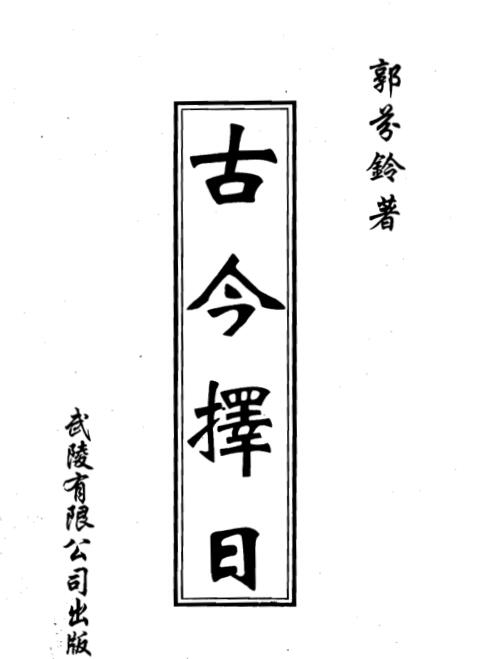 郭芬鈴著
古今擇日
武陵有限公司出版